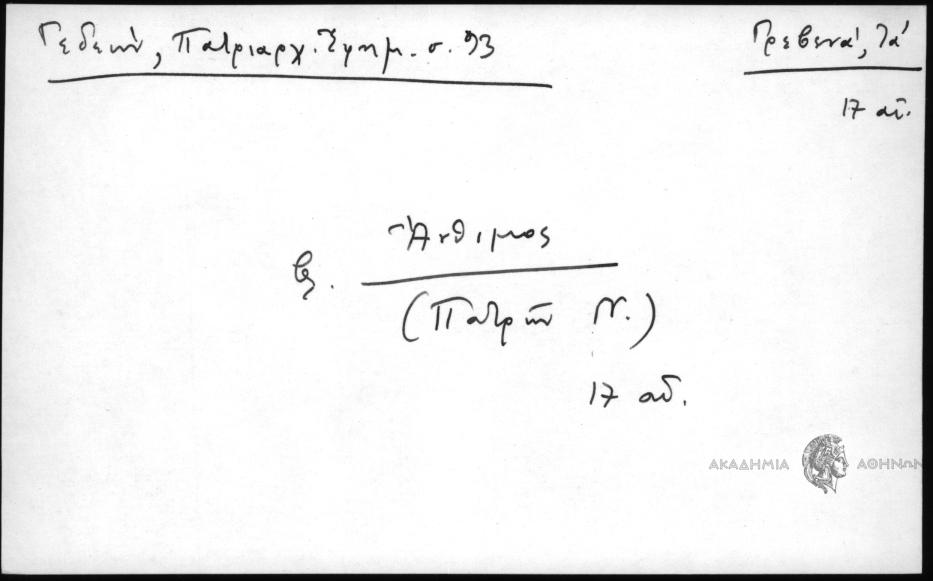 Γεδεών, Πατριαρχ. Ἐφημ. σ. 93
Γρεβενά, Τά
17 αἰ.
Ἄνθιμος
βλ.
(Πατρῶν Ν.)
17 αἰ.
ΑΚΑΔΗΜΙΑ ΑΘΗΝΩΝ